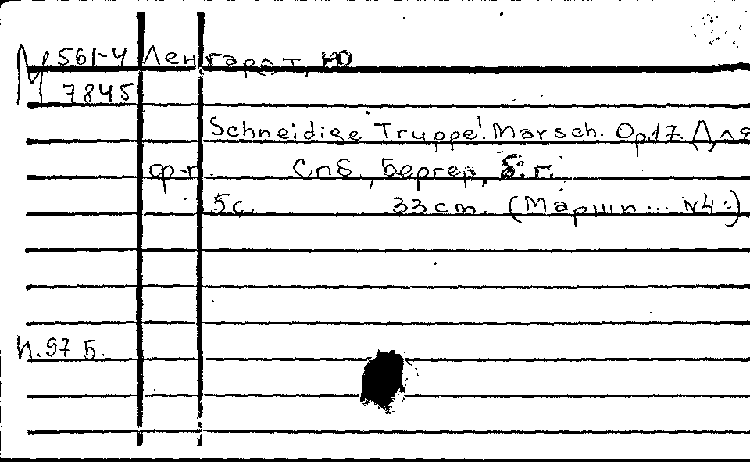 М 561-4 Ленгарот, Ю
7845
Schneidige Truppe! Marsch. Op17. Для
ф-п. Спб., Бергер, Б. г.
5с. 33 cm. (Марши... №4.)
И.97 Б.